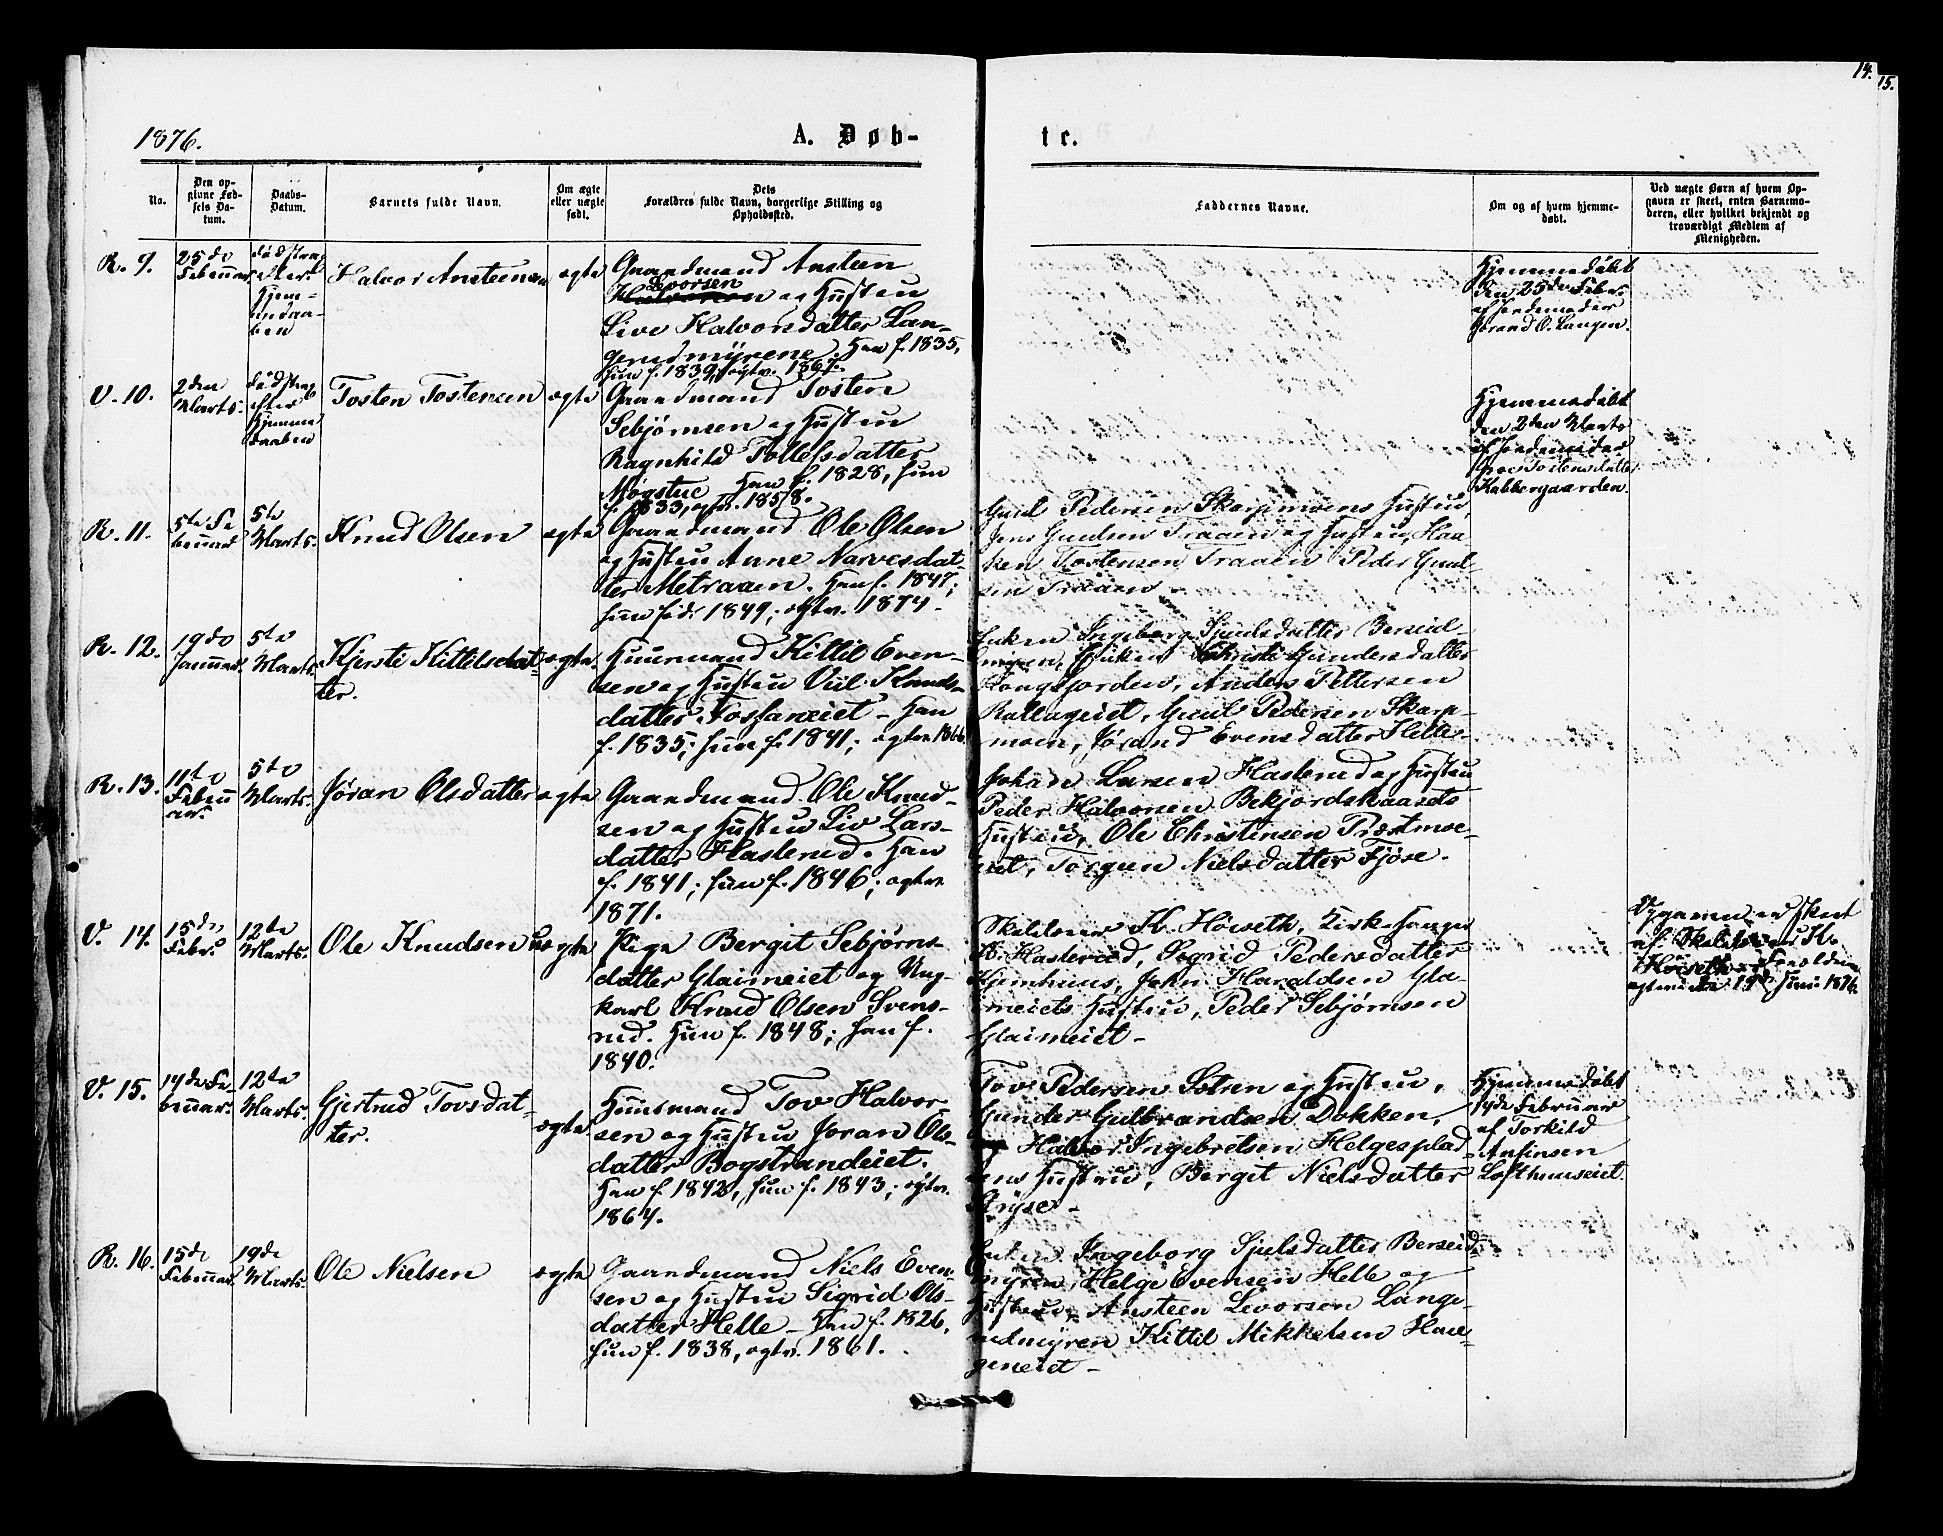 14.
15.
1876.
A. Døb-
te.
No.
Den op-
givne Fød-
sels Da-
tum.
Daabs-
Datum.
Barnets fulde Navn.
Om ægte
eller uægte
født.
Dets
Forældres fulde Navn, borgerlige Stilling og
Opholdssted.
Faddernes Navne.
Om og af hvem hjemme-
døbt.
Ved uægte Børn af hvem Op-
gaven er skeet, enten Barnemo-
deren, eller hvilket bekjendt og
troværdigt Medlem af
Menigheden.
R. 9.
25de
Februar.
død strax
efter
Hjem-
medaa-
ben
Halvor Ansteensen
ægte
Gaardmand Ansteen
Levorsen
og Hustru
Live Halvorsdatter Lan-
gerudmyrene. Han f. 1835,
hun f. 1839, ægtev. 1867.
Hjemmedøbt
den 25de Febr.
af Jordemoder
Jorand O. Langen.
V. 10.
2den
Marts.
død strax
efter
Hjemme
daaben
Tosten Tostensen
ægte
Gaardmand Tosten
Sebjørnsen og Hustru
Ragnhild Tollefsdatter
Møgstue Han f. 1828, hun
f. 1833, ægtv. 1858.
Hjemmedøbt
den 2den Marts
af Jordemoder
Kabbergaarden.
R. 11.
5te Fe
bruar
5te
Marts.
Knud Olsen
ægte
Gaardmand Ole Olsen
og Hustru Anne Narvesdat
ter Metraaen. Han f. 1847;
hun född 1849; ægtv. 1874.
Guul Pedersen Skarpmoens Hustru,
Jens Guulsen Traaen og Hustru, Haa-
ken Tostensen Traaen Peder Guul-
sen Traaen
R. 12.
19de
Januar.
5te
Marts.
Kjersti Kittilsdat
ter.
ægte.
Huusmand Kittil Even-
sen og Hustru Viil Knuds-
datter Fosfaneiet - Han
f. 1835; hun f. 1841; ægtev. 1866
Enken Ingeborg Sjulsdatter Berseid-
myren, Enken Christi Gundersdatter
Kongsjorden, Anders Pettersen
Rallageiet, Guul Pedersen Skarp-
moen, Jørand Evensdatter Helle-
R. 13.
11te
Febru
ar.
5te
Marts.
Jøran Olsdatter
ægte
Gaardmand Ole Knud-
sen og Hustru Liv Lars-
datter Hasterud. Han
f. 1841; hun f. 1846; ægtev
1871.
Johan Larsen Hasterud og Hustru
Peder Halvorsen Bekjordskaasets
Hustru, Ole Christensen Præstmoe-
eiet, Torgun Nielsdatter Fjøse.
V. 14.
15de
Febr.
12te
Marts.
Ole Knudsen
uægte
Pige Bergit Sebjørns-
datter Glaimeiet og Ung-
karl Knud Olsen Svens-
rud. Hun f. 1848; han f.
1840.
Skolelærer K. Høiseth, Kirkesanger
O. Hasterud, Sigrid Pedersdatter
Kjemhuus, John Haraldsen Gla-
imeiets Hustru, Peder Sebjørnsen
Glaimeiet -
Opgaven er skeet
af Skolelærer K.
Høiseth. - Forældrene
ægteviede 19de Juni 1876.
V. 15.
14de Fe-
bruar.
12te
Marts.
Gjertrud Tovsdat-
ter.
ægte
Huusmand Tov Halvor
sen og Hustru Joran Ols-
datter Bogstrandeiet.
Han f. 1842, hun f. 1843; ægtv.
1864.
Tov Pedersen Sotren og Hustru,
Gunder Gulbrandsen Dokken,
Halvor Ingebretsen Helgesplad
sens Hustru, Bergit Nielsdatter
Stryse -
Hjemmedøbt
14de Februar
af Torkild
Anfinsen
Lofthuuseiet.
R. 16.
15de
Februar.
19de
Marts.
Ole Nielsen
ægte
Gaardmand Niels Even-
sen og Hustru Sigrid Ols-
datter Helle - Han f. 1826,
hun f. 1838, ægtv. 1861.
Enken Ingeborg Sjulsdatter Berseid-
myren, Helge Evensen Helle og
Hustru, Ansteen Levorsen Lange-
rudmyren Kittil Mikkelsen Hau-
geneiet -